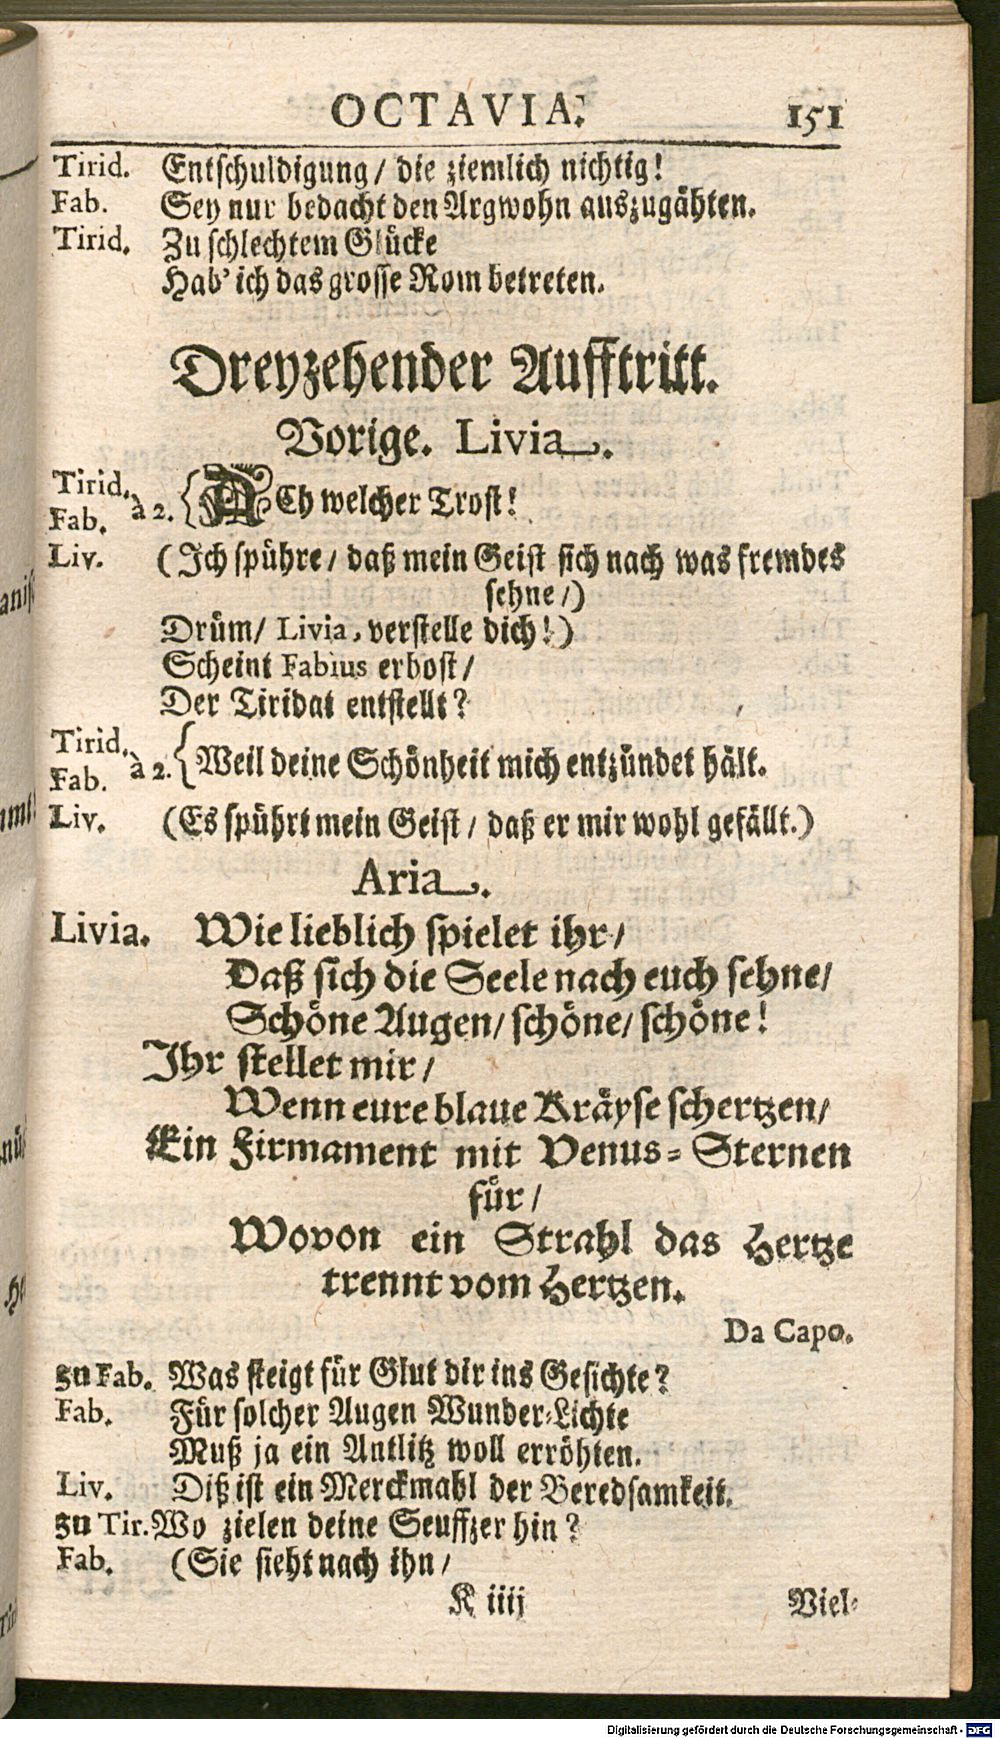 OCTAVIA. 151
Tirid. Entschuldigung/ die ziemlich nichtig!
Fab. Sey nur bedacht den Argwohn auszugähten.
Tirid. Zu schlechtem Glücke
Hab' ich das grosse Rom betreten.
Dreyzehender Aufftritt.
Vorige. Livia.
Tirid. Fab. à 2. { ACh welcher Trost!
Liv. (Ich spühre/ daß mein Geist sich nach was fremdes
sehne/)
Drüm/ Livia, verstelle dich!)
Scheint Fabius erbost/
Der Tiridat entstellt?
Tirid. Fab. à 2. { Weil deine Schönheit mich entzündet hält.
Liv. (Es spührt mein Geist/ daß er mir wohl gefällt.)
Aria.
Livia. Wie lieblich spielet ihr/
Daß sich die Seele nach euch sehne/
Schöne Augen/ schöne/ schöne!
Ihr stellet mir/
Wenn eure blaue Kräyse schertzen/
Ein Firmament mit Venus-Sternen
für/
Wovon ein Strahl das Hertze
trennt vom Hertzen.
Da Capo.
zu Fab. Was steigt für Glut dir ins Gesichte?
Fab. Für solcher Augen Wunder-Lichte
Muß ja ein Antlitz woll erröhten.
Liv. Diß ist ein Merckmahl der Beredsamkeit.
zu Tir. Wo zielen deine Seuffzer hin?
Fab. (Sie sieht nach ihn/
K iiij Viel-
Digitalisierung gefördert durch die Deutsche Forschungsgemeinschaft - DFG